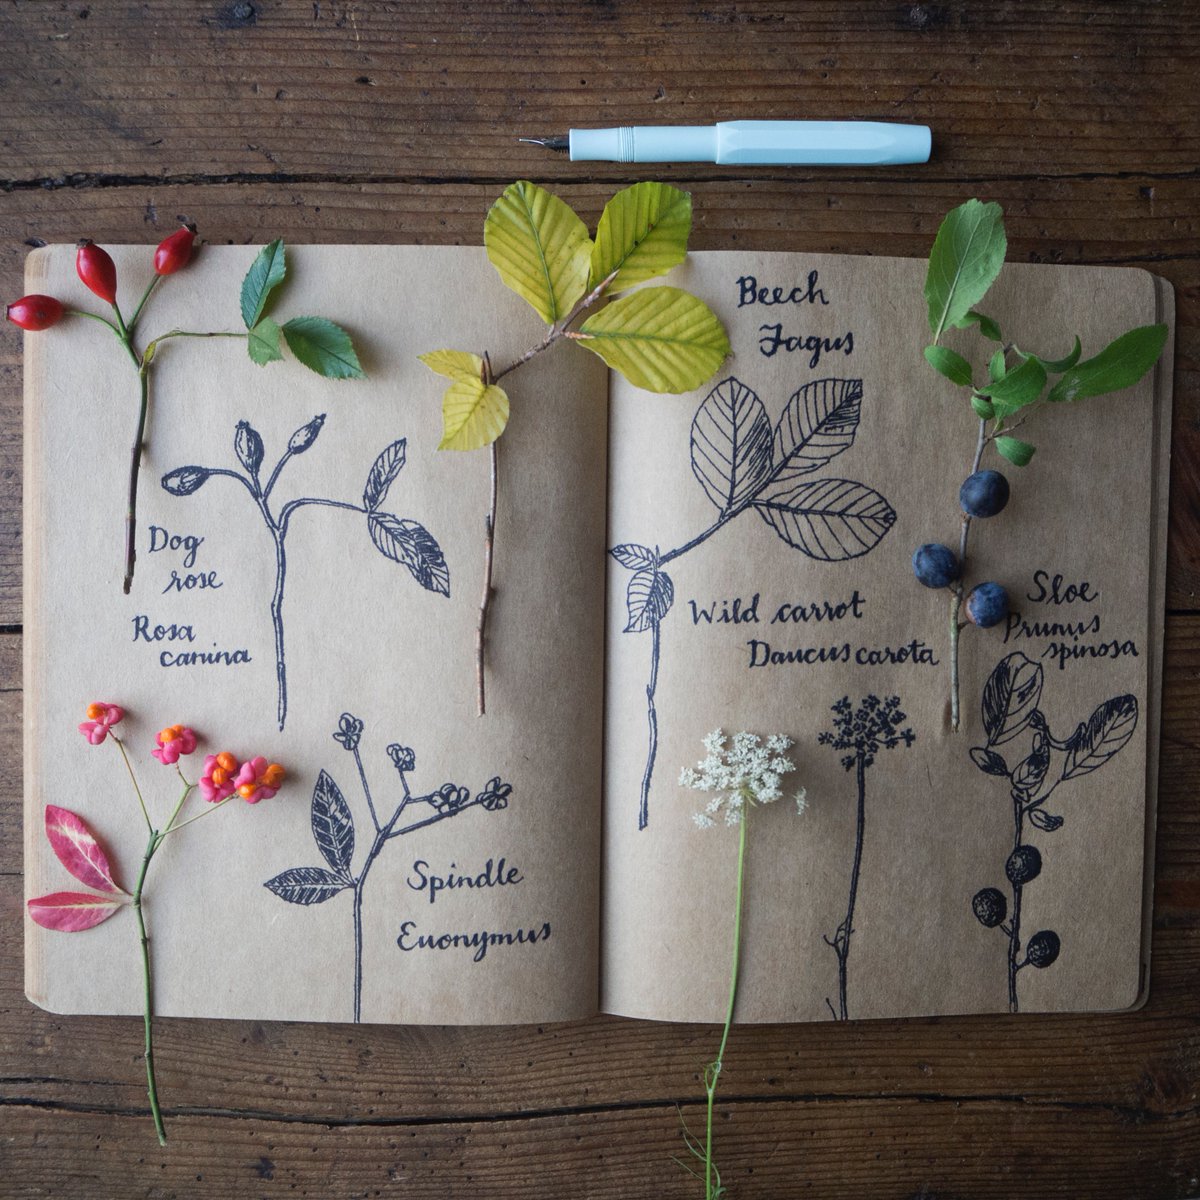 Dog
rose
Rosa
canina
Spindle
Euonymus
Beech
Fagus
Wild carrot
Daucus carota
Sloe
Prunus
spinosa